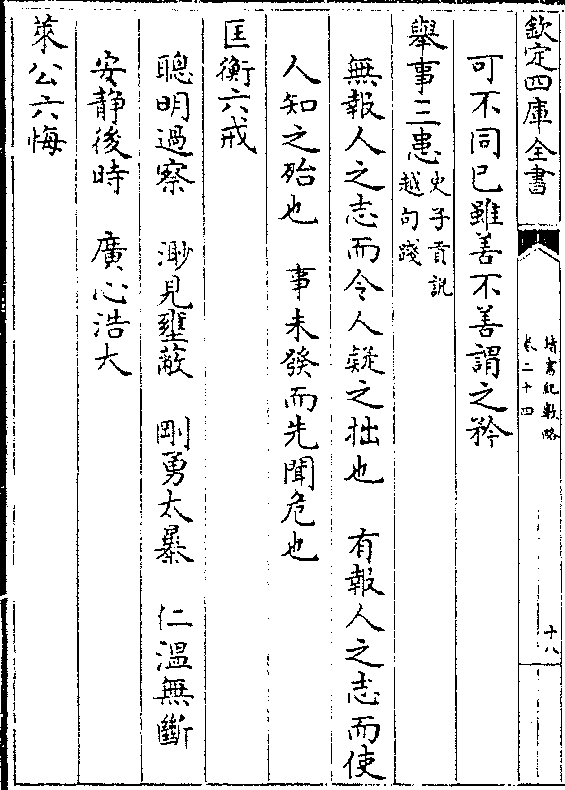 欽定四庫全書
讀書紀數略
卷二十四
十八
可不同已雖善不善謂之矜
舉事三患史子貢説越句踐
無報人之志而令人疑之拙也　有報人之志而使
人知之殆也　事未發而先聞危也
匡衡六戒
聰明過察　渺見壅蔽　剛勇太暴　仁温無斷
安静後時　廣心浩大
萊公六悔